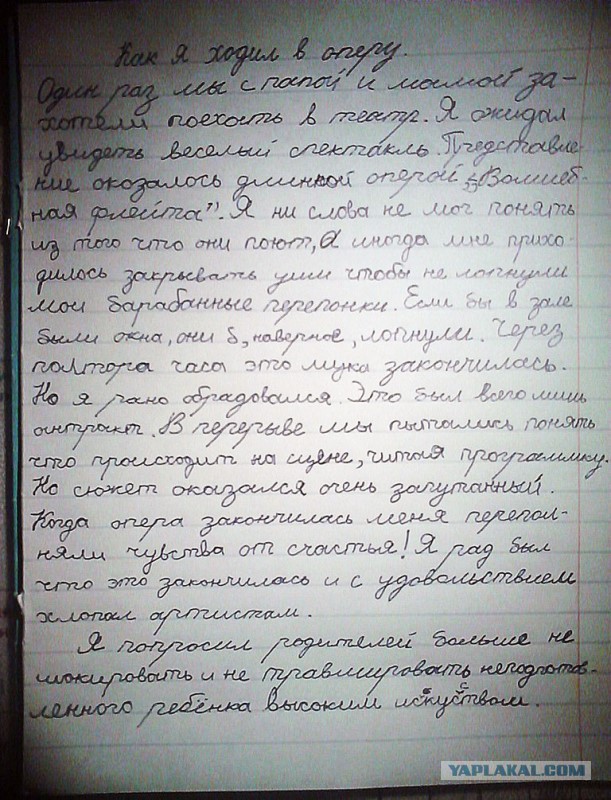 Как я ходил в оперу.
Один раз мы с папой и мамой за-
хотели поехать в театр. Я ожидал
увидеть веселый спектакль. Представле-
ние оказалось длинной оперой "Волшеб-
ная флейта". Я ни слова не мог понять
из того что они поют, а иногда мне прихо-
дилось закрывать уши чтобы не лопнули
мои барабанные перепонки. Если бы в зале
были окна, они б, наверное, лопнули. Через
полтора часа это мука закончилась.
Но я рано обрадовался. Это был всего лишь
антракт. В перерыве мы пытались понять
что происходит на сцене, читая программку.
Но сюжет оказался очень запутанный.
Когда опера закончилась меня перепол-
няли чувства от счастья! Я рад был
что это закончилась и с удовольствием
хлопал артистам.
Я попросил родителей больше не
шокировать и не травмировать неподготов-
ленного ребёнка высоким искусством.
YAPLAKAL.COM